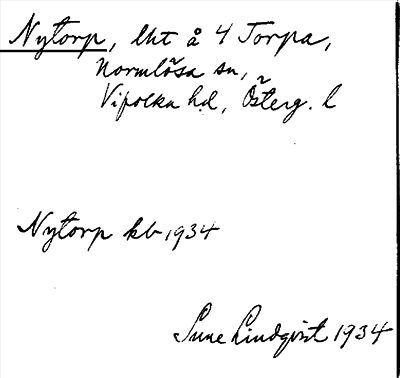 Nytorp, lht å 4 Torpa,
Normlösa sn,
Vifolka hd, Österg. l
Nytorp kb 1934
Sune Lindqvist 1934